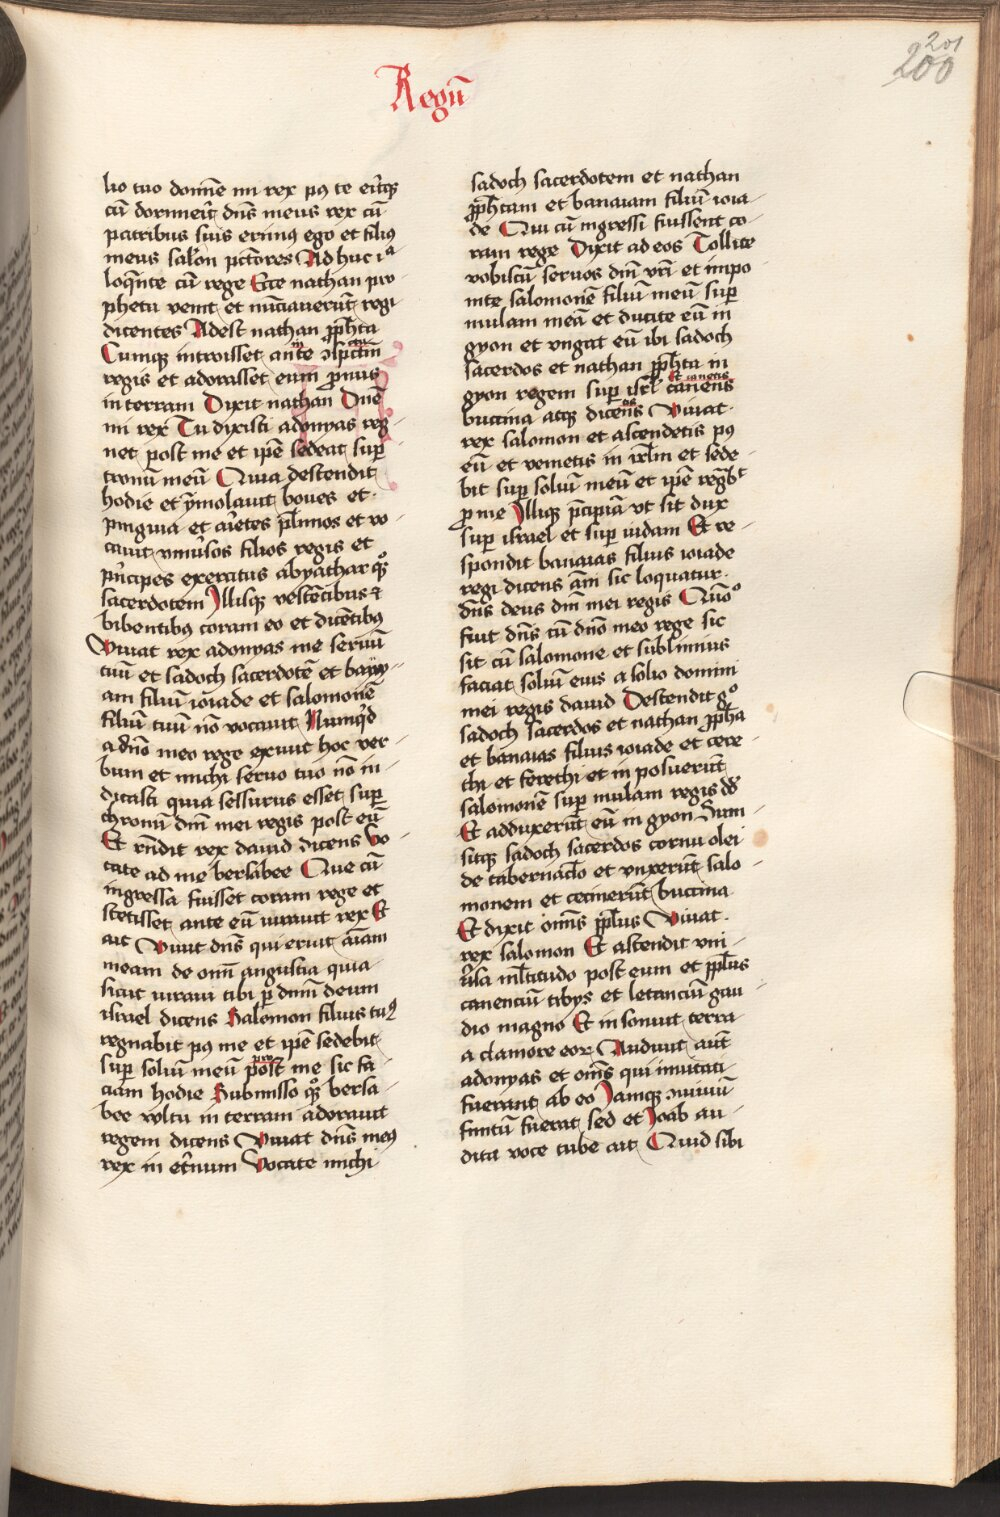 201
200
Regū
lio tuo domīe mi rex pꝰ te eritqꝫ
cū dormieīt dn̄s meus rex cū
patribus suis erimꝰ ego et filiꝰ
meus salōn pctōres Ad huc iᵃ
loqn̄te cū rege Ecce nathan pro
pheta venit et nūciauerūt regi
dicentes Adest nathan ꝓph̄ta
Cumqꝫ introisset ante ɔspctm̄
regis et adorasset eum ꝓnus
in terram Dixit nathan Dn̄e
mi rex Tu dixisti adonyas reg
net post me et ip̄e sedeat sup̄
tronū meū Quia descendit
hodie et ymolauit boues et
pinguia et aīetes pl̄imos et vo
cauit vniūsos filios regis et
pn̄cipes exercitus abyathar qꝫ
sacerdotem Illisqꝫ vescētibus ⁊
bibentibꝰ coram eo et dicētibꝰ
Viuat rex adonyas me seruū
tuū et sadoch sacerdotē et bany
am filiū ioiade et salomonē
filiū tuū nō vocauit Numqͥd
a dn̄o meo rege exiuit hoc ver
bum et michi seruo tuo nō in
dicasti quia sessurus esset sup̄
thronū dn̄i mei regis post eū
Et rn̄dit rex dauid dicens Vo
cate ad me bersabee Que cū
ingressa fuisset coram rege et
stetisset ante eū iurauit rex Et
ait Viuit dn̄s qui eruit aīam
meam de om̄i angustia quia
sicut iuraui tibi ꝑ dn̄m deum
israel dicens Salomon filius tuꝰ
regnabit pꝰ me et ip̄e sedebit
sup̄ soliū meū post pro me sic fa
ciam hodie Submisso qꝫ bersa
bee vultu in terram adorauit
regem dicens Viuat dn̄s meꝰ
rex in et̄num Vocate michi
sadoch sacerdotem et nathan
ꝓph̄tam et banaiam filiū ioia
de Qui cū ingressi fuissent co
ram rege Dixit ad eos Tollite
vobiscū seruos dn̄i vr̄i et impo
nite salomonē filiū meū sup̄
mulam meā et ducite eū in
gyon et vngat eū ibi sadoch
sacerdos et nathan ꝓph̄ta in
Et canetis
gyon regem sup̄ isrl̄ canens
buccina atqꝫ dicens Viuat
rex salomon et ascendetis pꝰ
eū et venietis in ihrl̄m et sede
bit sup̄ soliū meū et ip̄e regn̄bᵗ
ꝓ me Illiqꝫ p̄cipiā vt sit dux
sup̄ israel et sup̄ iudam Et re
spondit banaias filius ioiade
regi dicens am̄ sic loquatur
dn̄s deus dn̄i mei regis Quōᵒ
fuit dn̄s cū dn̄o meo rege sic
sit cū salomone et sublimius
faciat soliū eius a solio domini
mei regis dauid Descendit gᵒ
sadoch sacerdos et nathan ꝓph̄a
et banaias filius ioiade et cere
thi et ferethi et in posuerūt
salomonē sup̄ mulam regis dd̄
Et adduxerūt eū in gyon Sum
sitqꝫ sadoch sacerdos cornu olei
de tabernac̄lo et vnxerūt salo
monem et cecinerūt buccina
Et dixit om̄is ppl̄us Viuat
rex salomon Et ascendit vni
ūsa ml̄titudo post eum et ppl̄us
canenciū tibys et letanciū gau
dio magno Et in sonuit terra
a clamore eoꝝ Audiuit aut̄
adonyas et om̄s qui inuitati
fuerant ab eo Iamqꝫ ɔuiuiū
finitū fuerat sed et Ioab au
dita voce tube ait Quid sibi